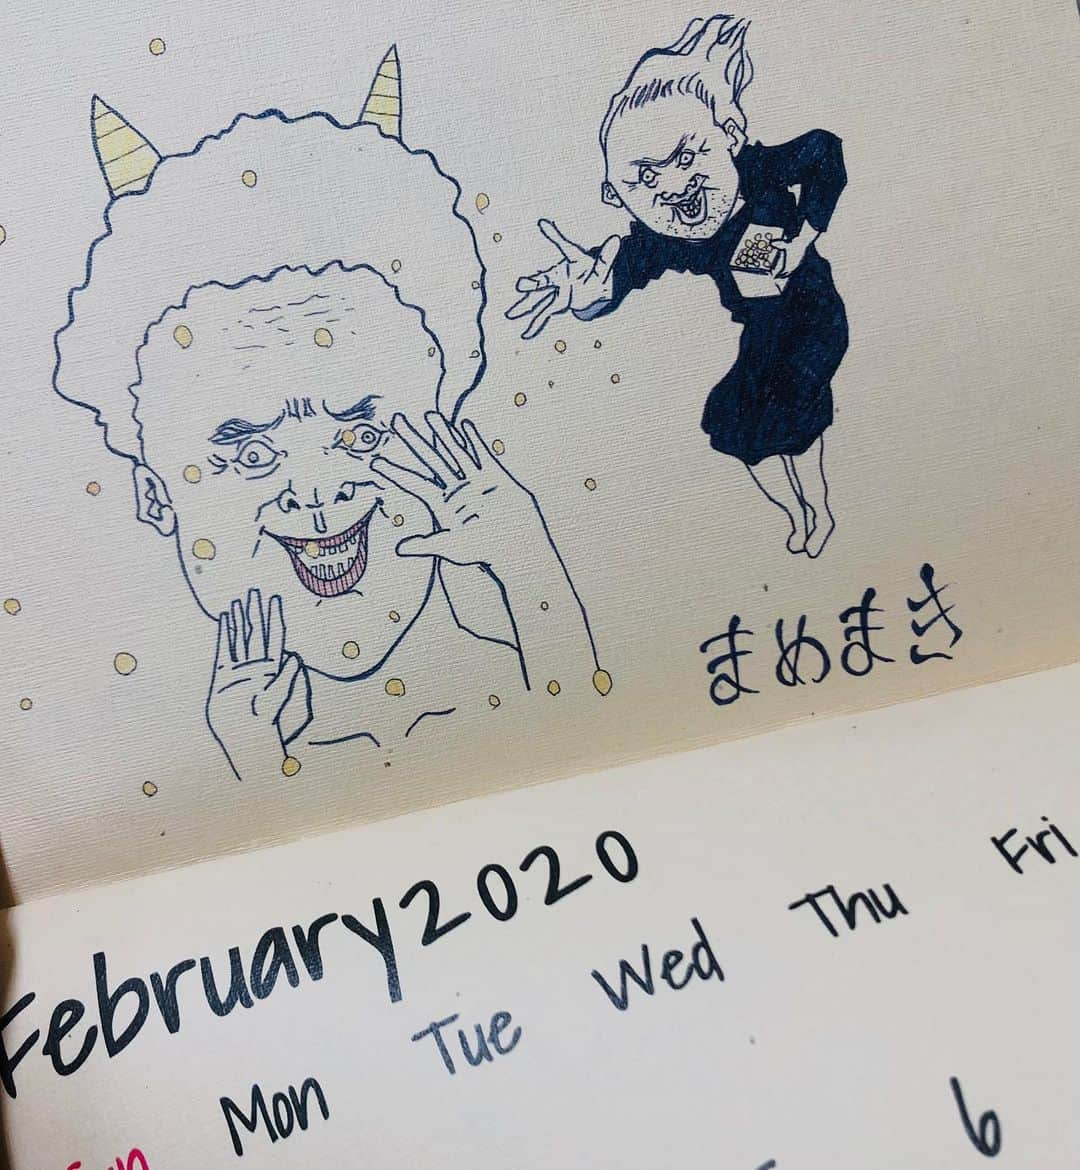 まめまき
February 2020
Sun Mon Tue Wed Thu Fri
6